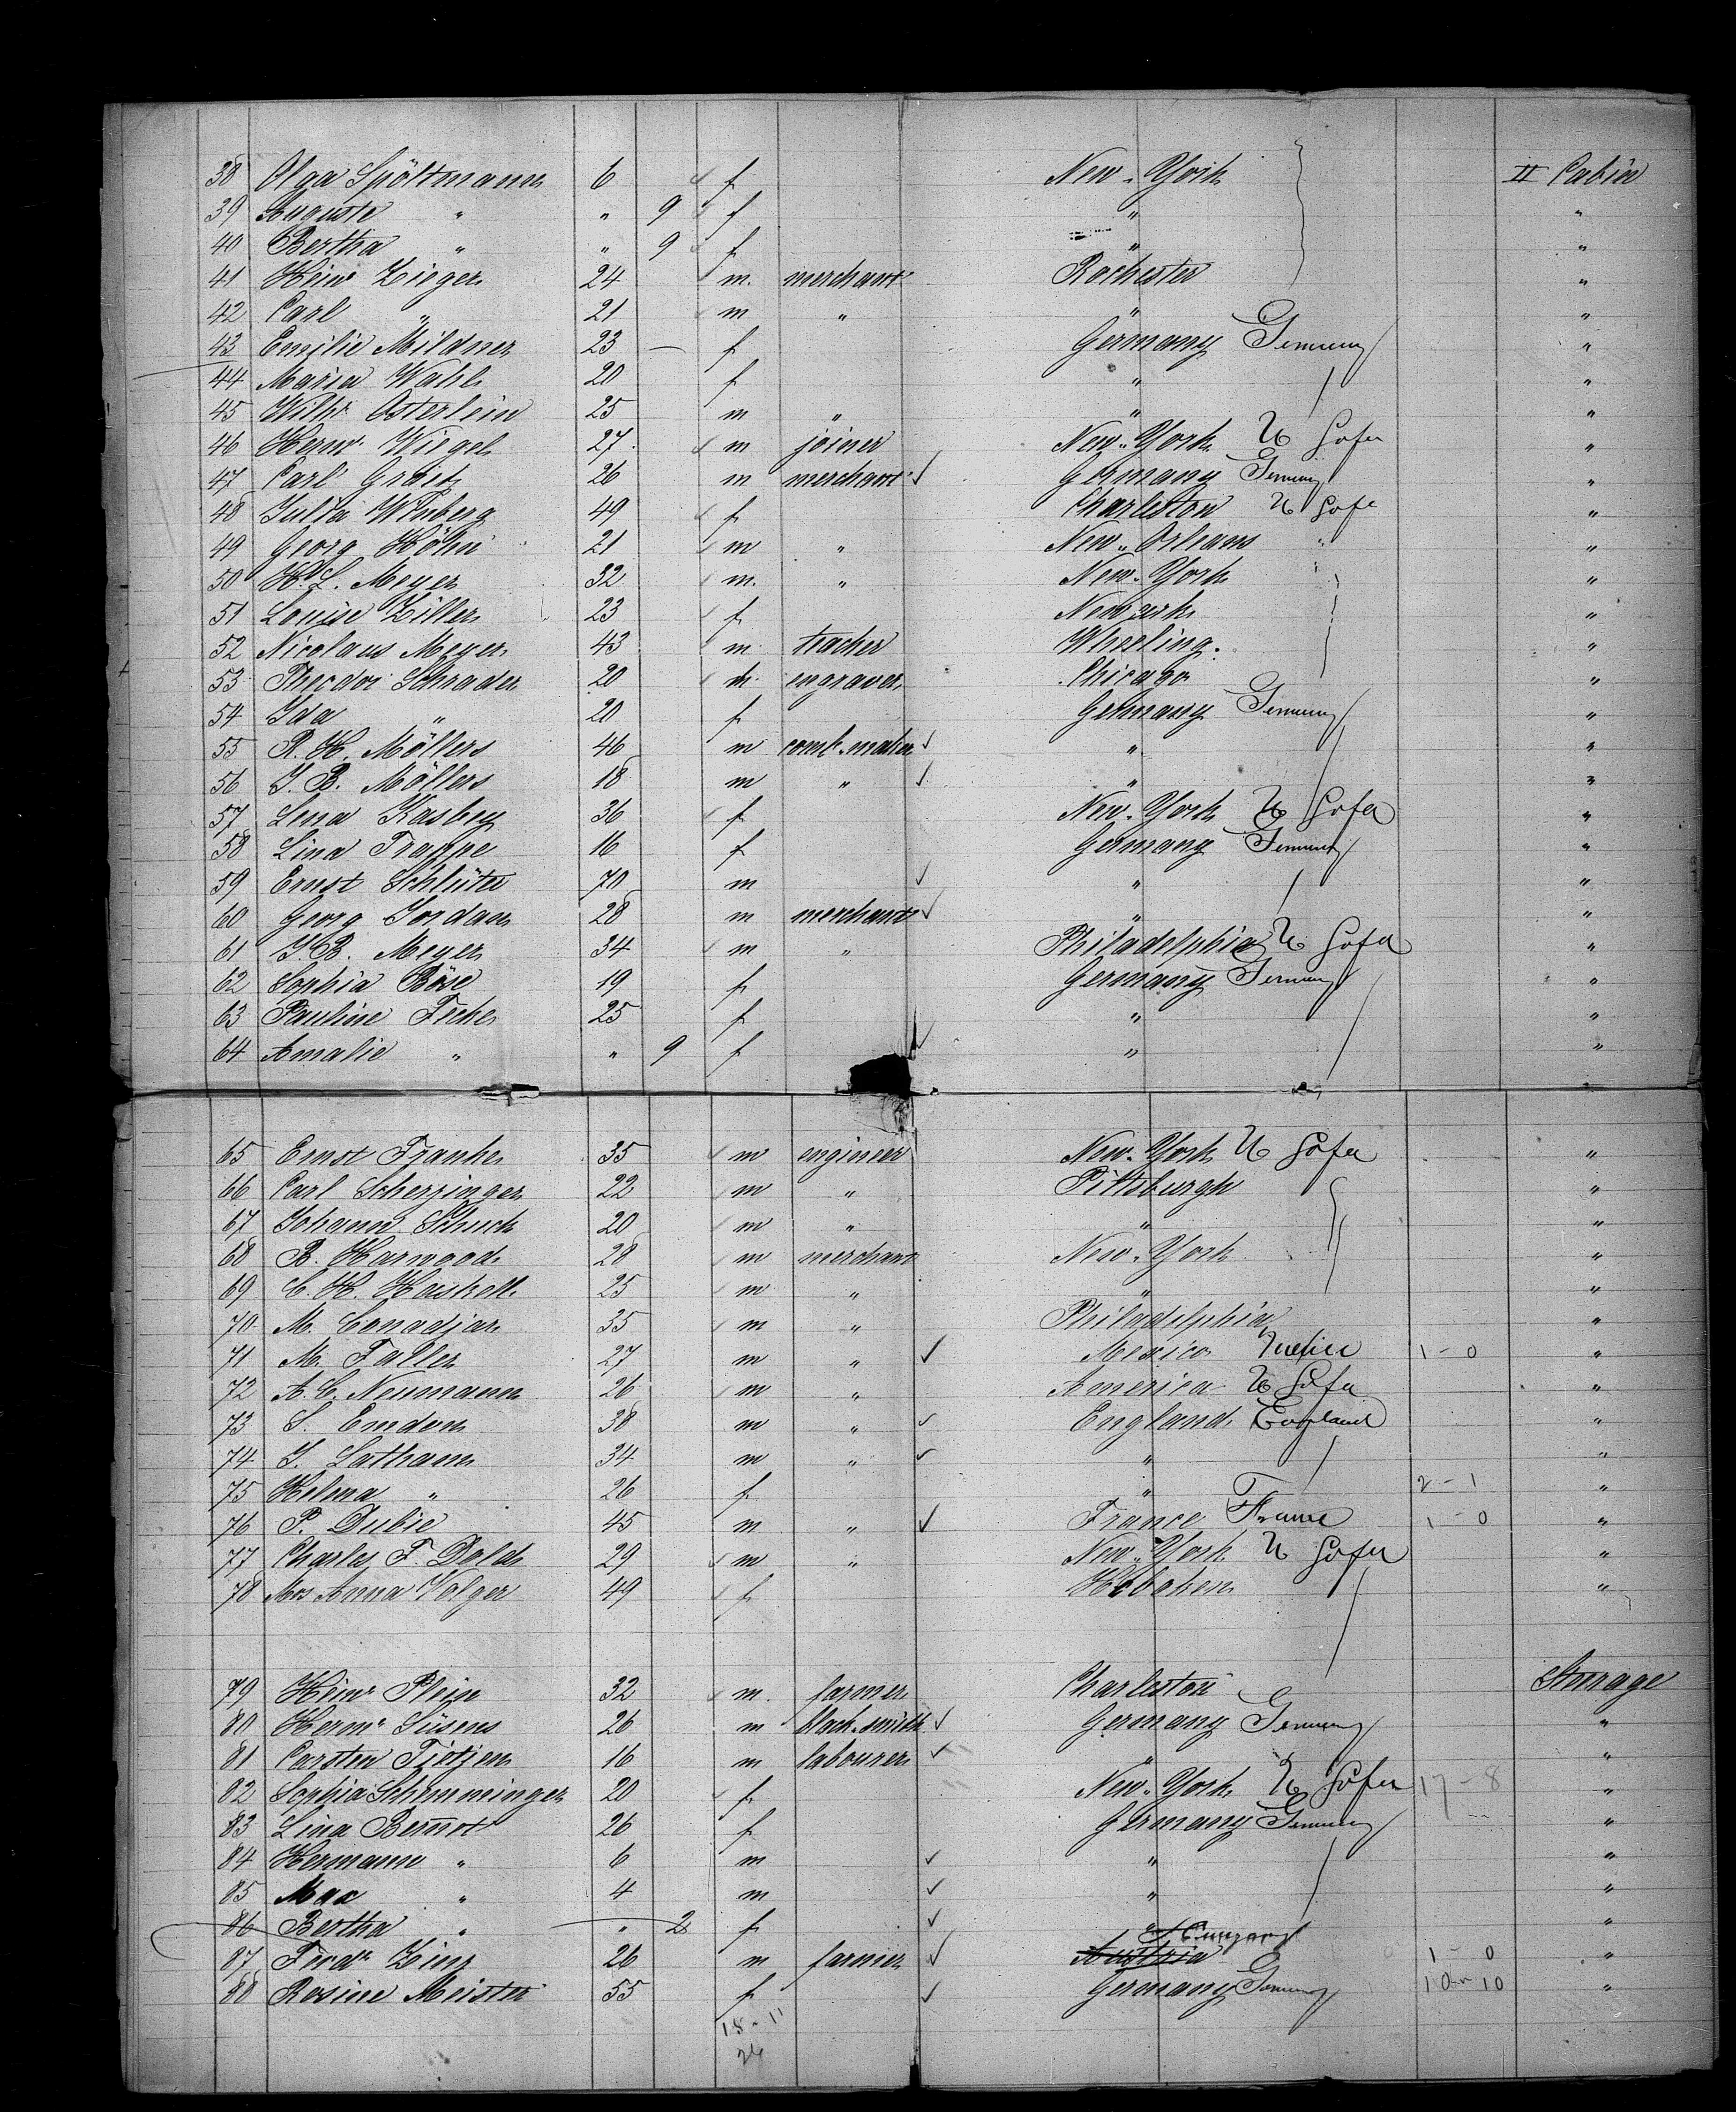 38 Olga Spöltmann 6 f New-York II Cabin
39 Auguste " " 9 f " "
40 Bertha " " 9 f " "
41 Heinr Zieger 24 m. merchant Rochester "
42 Carl " 21 m " " "
43 Emilie Mildner 23 f Germany Germany "
44 Maria Wahl 20 f " "
45 Wilhr Osterlein 25 m " " "
46 Herm. Wiegel 27 m joiner New-York U S of A "
47 Carl 26 m merchant ✓ Germany Germany "
48 Julia Winberg 49 f Charleston U S of A "
49 Georg Höhn 21 m " New-Orleans " "
50 H. L. Meyer 32 m. " New-York "
51 Louise Ziller 23 f Newark "
52 Nicolaus Meyer 43 m teacher Wheeling. "
53 Theodor Schrader 20 m engraver Chicago "
54 Ida " 20 f Germany Germany "
55 R. H. Möllers 46 m comb-maker ✓ " "
56 J. B. Möllers 18 m " ✓ " "
57 Lena Kasberg 36 f New-York U S of A "
58 Lina Trappe 16 f Germany Germany "
59 Ernst Schlüter 70 m ✓ " "
60 Georg Jordan 28 m merchant ✓ " "
61 J. B. Meyer 34 m " Philadelphia U S of A "
62 Sophia Böse 19 f Germany Germany "
63 Pauline 25 f " "
64 Amalie " " 9 f ✓ " "
65 Ernst Franke 35 m engineer New-York U S of A "
66 Carl Scherzinger 22 m " Pittsburgh "
67 Johann Schuck 20 m " " "
68 B. Harwood 28 m merchant New-York "
69 C. H. Haskell 25 m " " "
70 M. Conadjar 35 m " Philadelphia "
71 M. Faller 27 m " ✓ Mexico Mexico 1-0 "
72 A. C. Neumann 26 m " America U S of A "
73 S. Emden 38 m " ✓ England England "
74 J. Latham 34 m " ✓ " "
75 Helena " 26 f " 2-1 "
76 P. Dubie 45 m " ✓ France France 1-0 "
77 Charles F. Dold 29 m " New-York U S of A "
78 Mrs Anna Volger 49 f Hoboken "
79 Heinr Plein 32 m. farmer Charleston Steerage
80 Hermr Süsens 26 m black-smith ✓ Germany Germany "
81 Carsten Tietjen 16 m labourer ✓ " "
82 Sophia Schimminger 20 f New-York U S of A 17-8 "
83 Lina 26 f Germany Germany "
84 Hermann " 6 m ✓ " "
85 Max " 4 m ✓ " "
86 Bertha " " 2 f ✓ " "
Germany
87 Ferdr Zinz 26 m farmer ✓ Austria 1-0 "
88 Rosine Meister 55 f ✓ Germany Germany 10-10 "
15-11
26